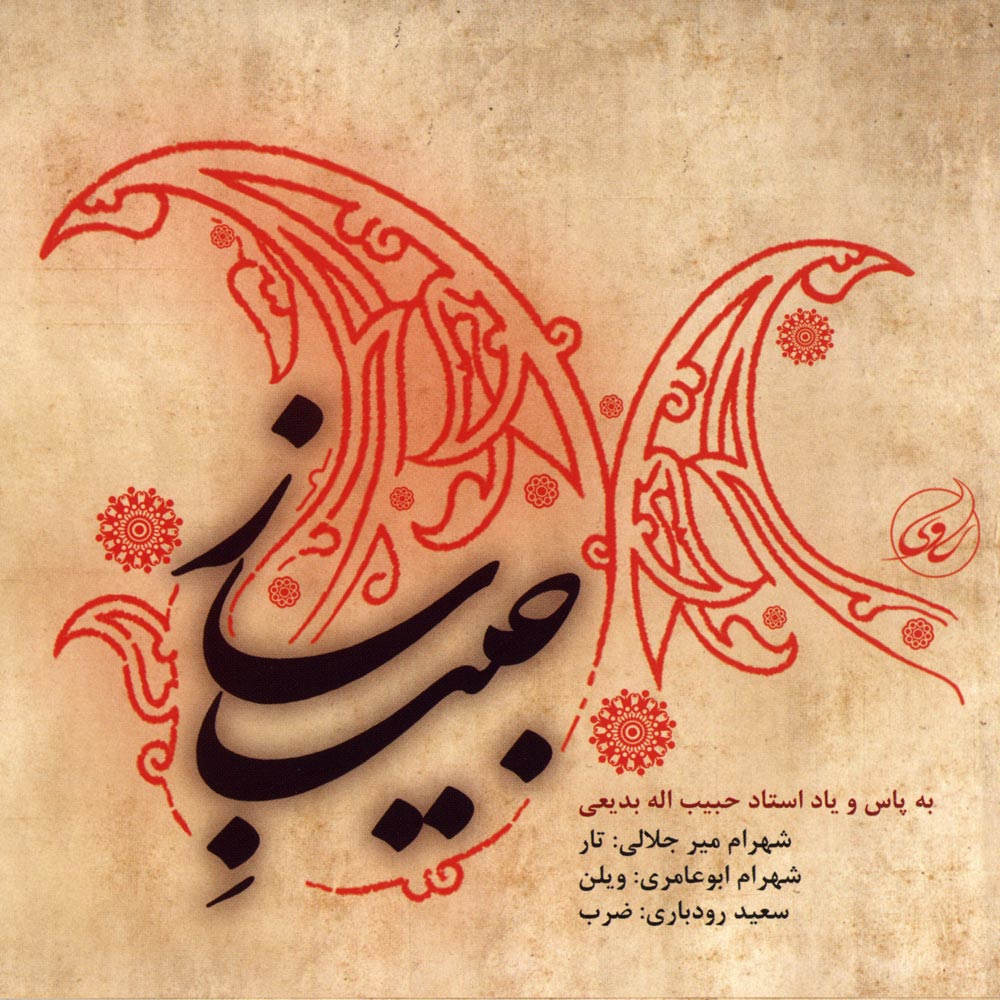 حبیبِ ساز
به پاس و یاد استاد حبیب اله بدیعی
شهرام میر جلالی: تار
شهرام ابوعامری: ویلن
سعید رودباری: ضرب